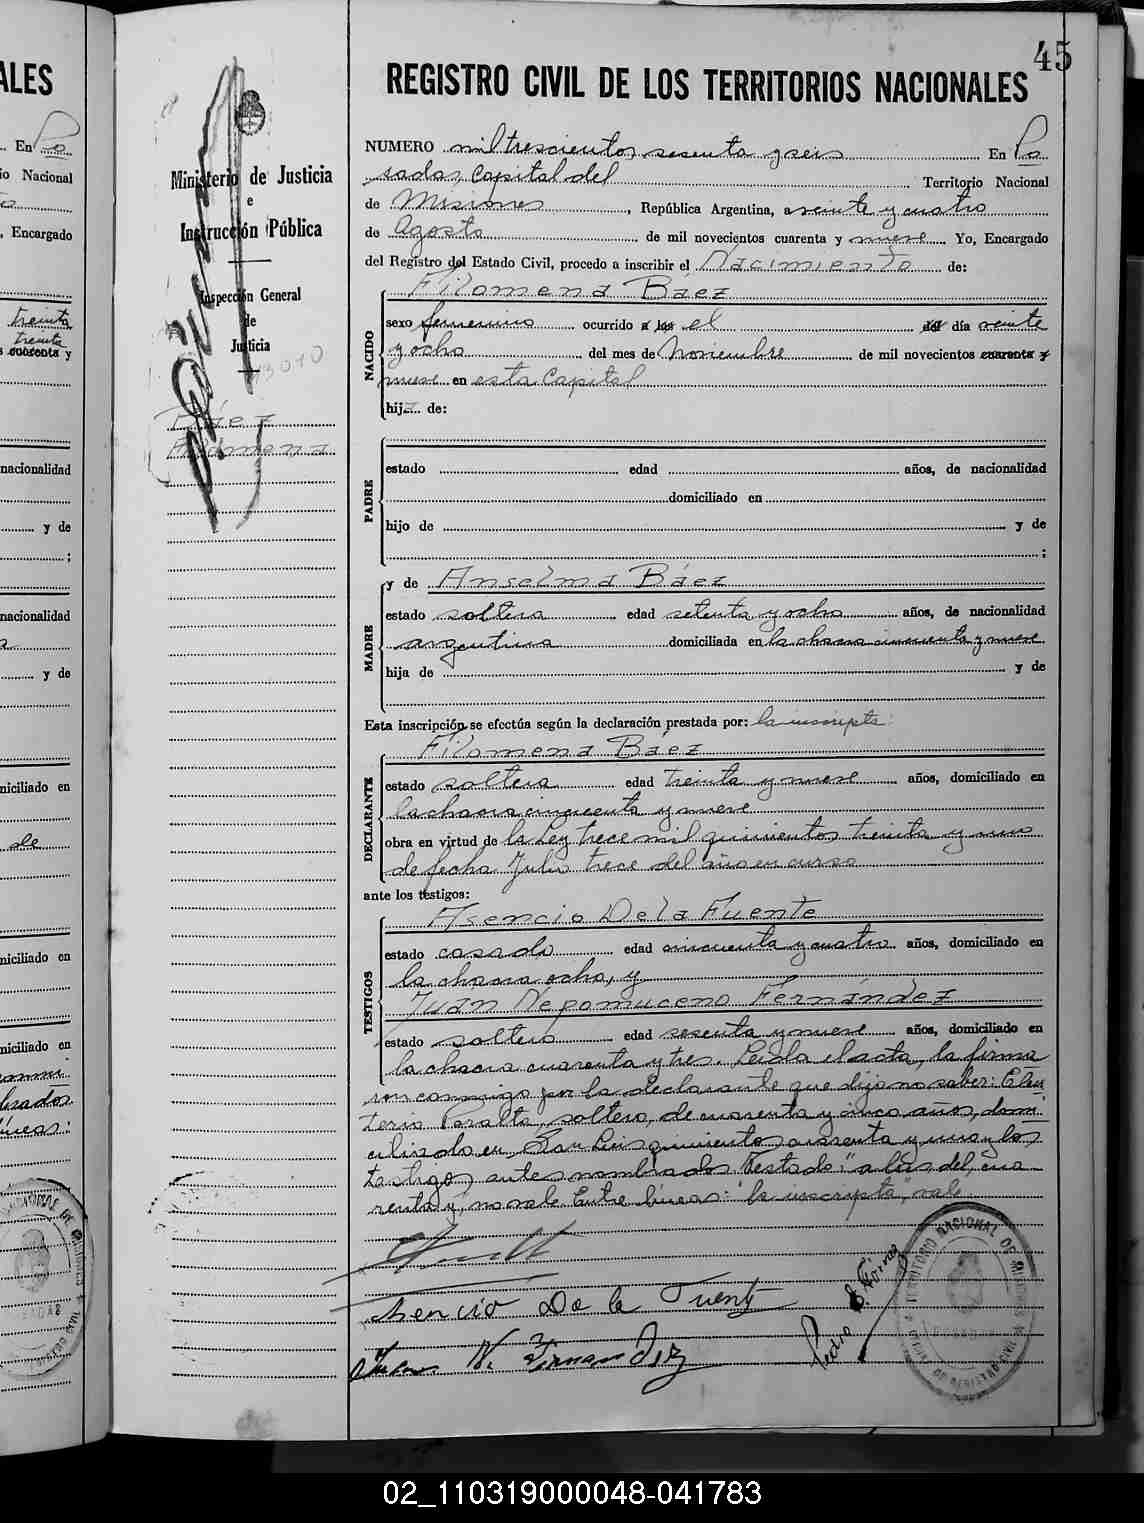 45
REGISTRO CIVIL DE LOS TERRITORIOS NACIONALES
ALES
En Po
io Nacional
, Encargado
treinta
treinta
y
nacionalidad
y de
;
nacionalidad
y de
niciliado en
de
niciliado en
niciliado en
Ministerio de Justicia
e
Instrucción Pública
Inspección General
de
Justicia
Báez
Filomena
NUMERO mil trescientos sesenta y seis En Po
sadas, Capital del Territorio Nacional
de Misiones, República Argentina, a veinte y cuatro
de Agosto de mil novecientos cuarenta y nueve Yo, Encargado
del Registro del Estado Civil, procedo a inscribir el Nacimiento de:
NACIDO
Filomena Báez
sexo femenino ocurrido a las el del día veinte
y ocho del mes de Noviembre de mil novecientos cuarenta y
nueve en esta Capital
hija de:
PADRE
estado edad años, de nacionalidad
domiciliado en
hijo de y de
;
MADRE
y de Anselma Báez
estado soltera edad setenta y ocho años, de nacionalidad
argentina domiciliada en la chacra cincuenta y nueve
hija de y de
Esta inscripción se efectúa según la declaración prestada por: la inscripta:
DECLARANTE
Filomena Báez
estado soltera edad treinta y nueve años, domiciliado en
la chacra cincuenta y nueve
obra en virtud de la Ley trece mil quinientos treinta y uno
de fecha Julio trece del año en curso
ante los testigos:
TESTIGOS
Asencio De la Fuente
estado casado edad cincuenta y cuatro años, domiciliado en
la chacra ocho, y
Juan Nepomuceno Fernández
estado soltero edad sesenta y nueve años, domiciliado en
la chacra cuarenta y tres. Leida el acta, la firma
ron conmigo por la declarante que dijo no saber: Eleu
terio Peralta, soltero, de cuarenta y cinco años, domi
ciliado en San Luis quinientos cuarenta y uno y los
testigos antes nombrados. Testado: "a las del, cua
renta y", no vale. Entre líneas: "la inscripta", vale.
Asencio De la Fuente
Juan N. Fernandez
Pedro
TERRITORIO NACIONAL DE MISIONES
02_110319000048-041783